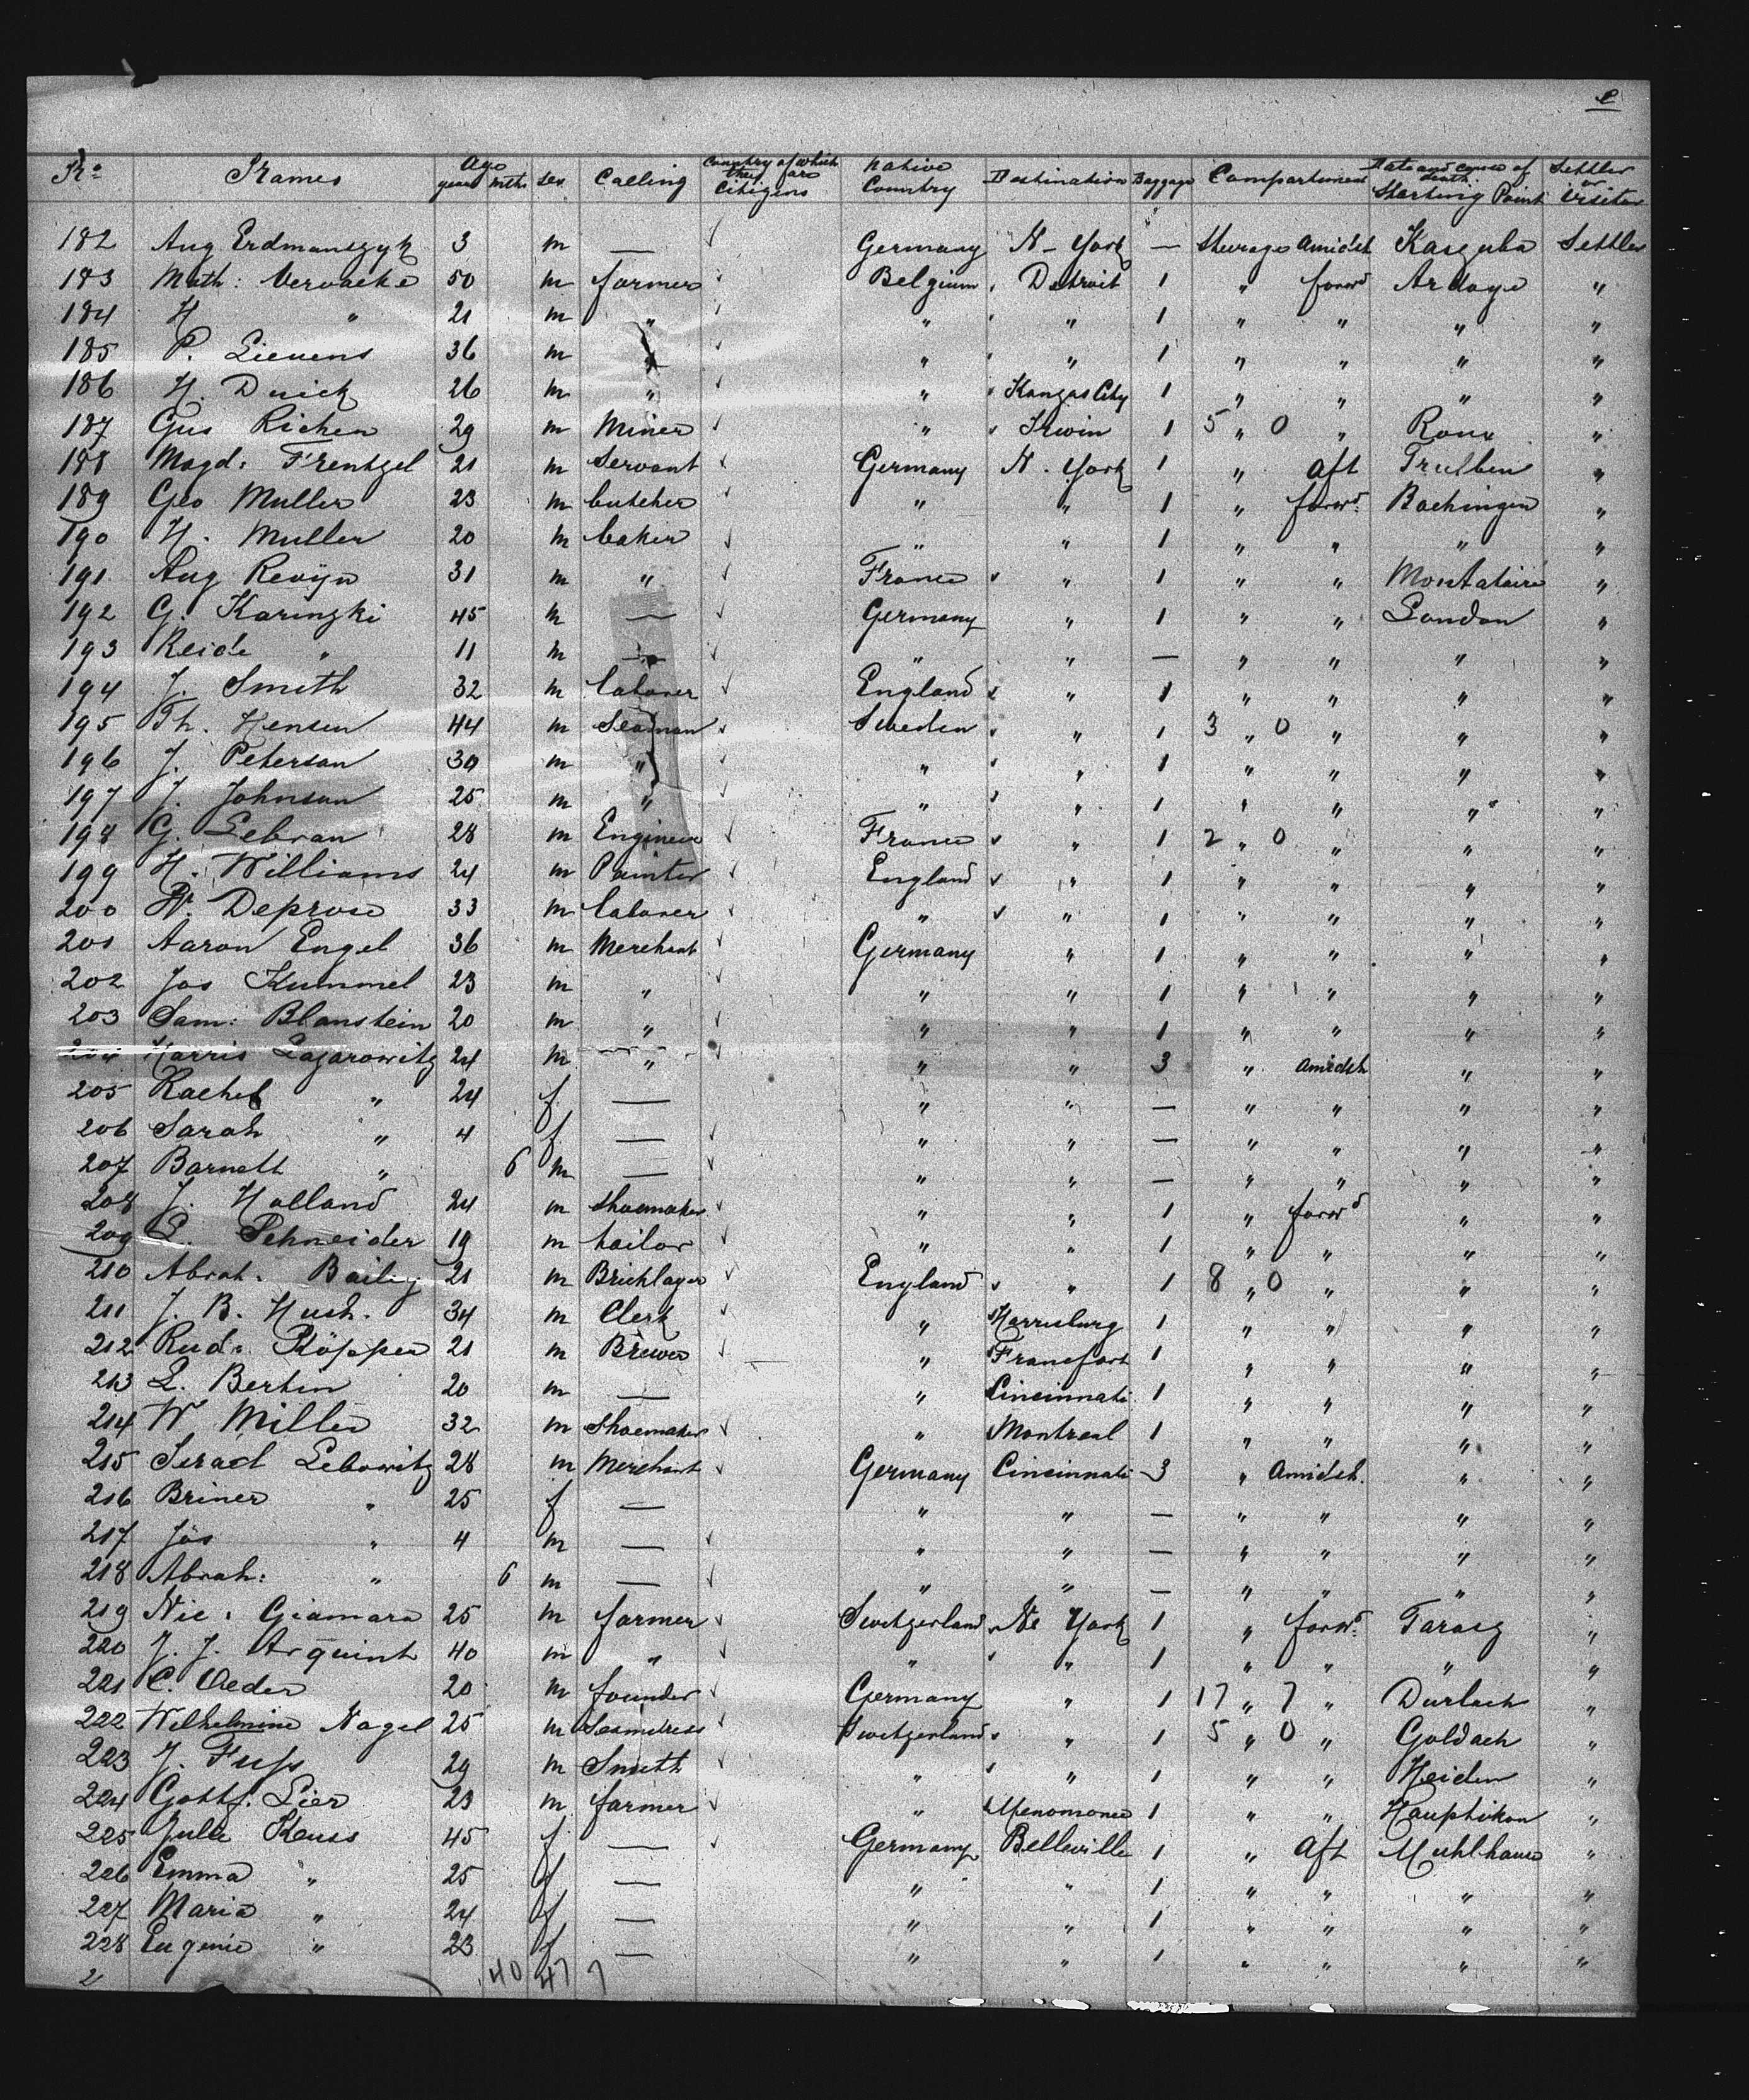 e
No Names Age years mths Sex Calling Country of which they are Citizens Native Country Destination Baggage Compartment Date and cause of death. Starting Point Settler or Visitor
182 Aug Erdmanszyk 3 m — Germany N-York — Steerage Amidsh Kaszuba Settler
183 Math: Vervacke 50 m farmer Belgium Detroit 1 " forwd Ardoye "
184 H " 21 m " " " 1 " " " "
185 P. Lievens 36 m " " " 1 " " " "
186 H. Duick 26 m " " Kansas City 1 " " " "
187 Gus Richen 29 m Miner " Irwin 1 5 " 0 " Roux "
188 Magd: Frentzel 21 m Servant Germany N. York 1 " aft Trulben "
189 Geo Muller 23 m butcher " " 1 " forwd. Bachingen "
190 H. Muller 20 m baker " " 1 " " " "
191 Aug Revijn 31 m " France " 1 " " Montataire "
192 G. Karinski 45 m — Germany " 1 " " London "
193 Reide " 11 m — " " — " " " "
194 J. Smith 32 m laborer England " 1 " " " "
195 Th. Hensen 44 m Seaman Sweden " 1 3 " 0 " " "
196 J. Peterson 30 m " " " 1 " " " "
197 J. Johnson 25 m " " " 1 " " " "
198 G. Lebran 28 m Engineer France " 1 2 " 0 " " "
199 H. Williams 24 m Painter England " 1 " " " "
200 W. Deprose 33 m laborer " " 1 " " " "
201 Aaron Engel 36 m Merchant Germany " 1 " " " "
202 Jos Kummel 23 m " " " 1 " " " "
203 Sam: Blanstein 20 m " " " 1 " " " "
204 Harris Lazarowitz 24 m " " " 3 " Amidsh " "
205 Rachel " 24 f — " " — " " " "
206 Sarah " 4 f — " " — " " " "
207 Barnett " 6 m — " " — " " " "
208 J. Holland 24 m shoemaker " " 1 " forwd " "
209 L. Schneider 19 m tailor " " 1 " " " "
210 Abrah. Baily 21 m Bricklayer England " 1 8 " 0 " " "
211 J. B. Hush. 34 m Clerk " Harrisburg 1 " " " "
212 Rud: Klöpper 21 m Brewer " Francfort 1 " " " "
213 L. Bertin 20 m — " Cincinnati 1 " " " "
214 W Miller 32 m Shoemaker " Montreal 1 " " " "
215 Israel Lebowitz 28 m Merchant Germany Cincinnati 3 " Amidsh. " "
216 Briner " 25 f — " " — " " " "
217 Jos " 4 m — " " — " " " "
218 Abrah: " 6 m — " " — " " " "
219 Nic: Giamara 25 m farmer Switzerland Ne York 1 " forwd. Tarasz "
220 J. J. Arquint 40 m " " " 1 " " " "
221 C. Oeder 20 m founder Germany " 1 17 " 7 " Durlach "
222 Wilhelmine Nagel 25 m Seamstress Switzerland " 1 5 " 0 " Goldach "
223 J. Fuss 29 m Smith " " 1 " " Heiden "
224 Gottf. Lier 23 m farmer " Menomonee 1 " " Hauptikon "
225 Julie Keuss 45 f — Germany Belleville 1 " aft Muhlhause "
226 Emma " 25 f — " " 1 " " " "
227 Maria " 24 f — " " 1 " " " "
228 Eugenie " 23 f — " " 1 " " " "
40 47 7